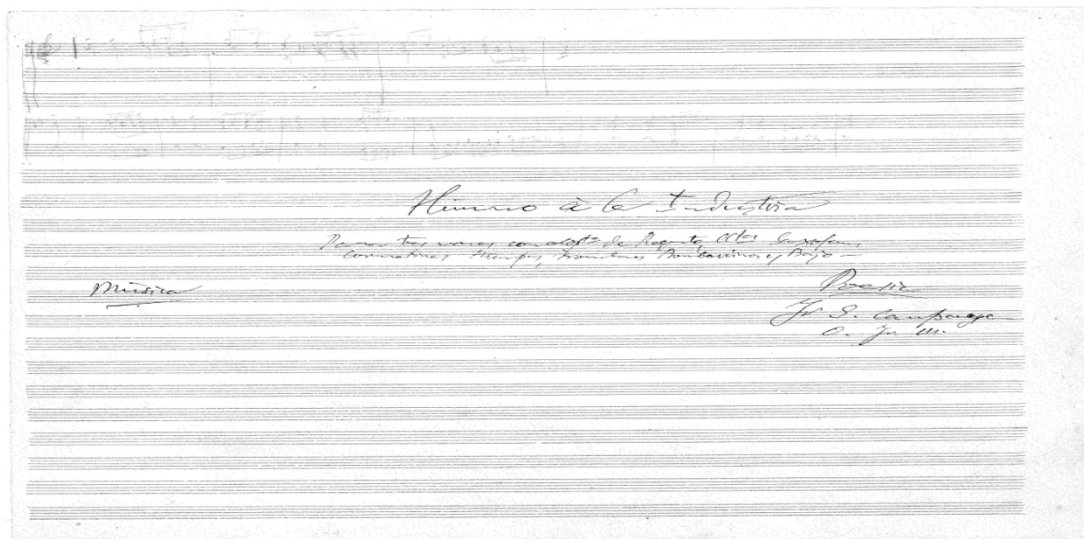 Himno á la Industria
Para tres voces con de Requinto, Cltes Saxofones,
Cornetines Trompas, Trombones Bombardinos y Bajo —
Música
Poesía
Fr. S.
O. F. M.